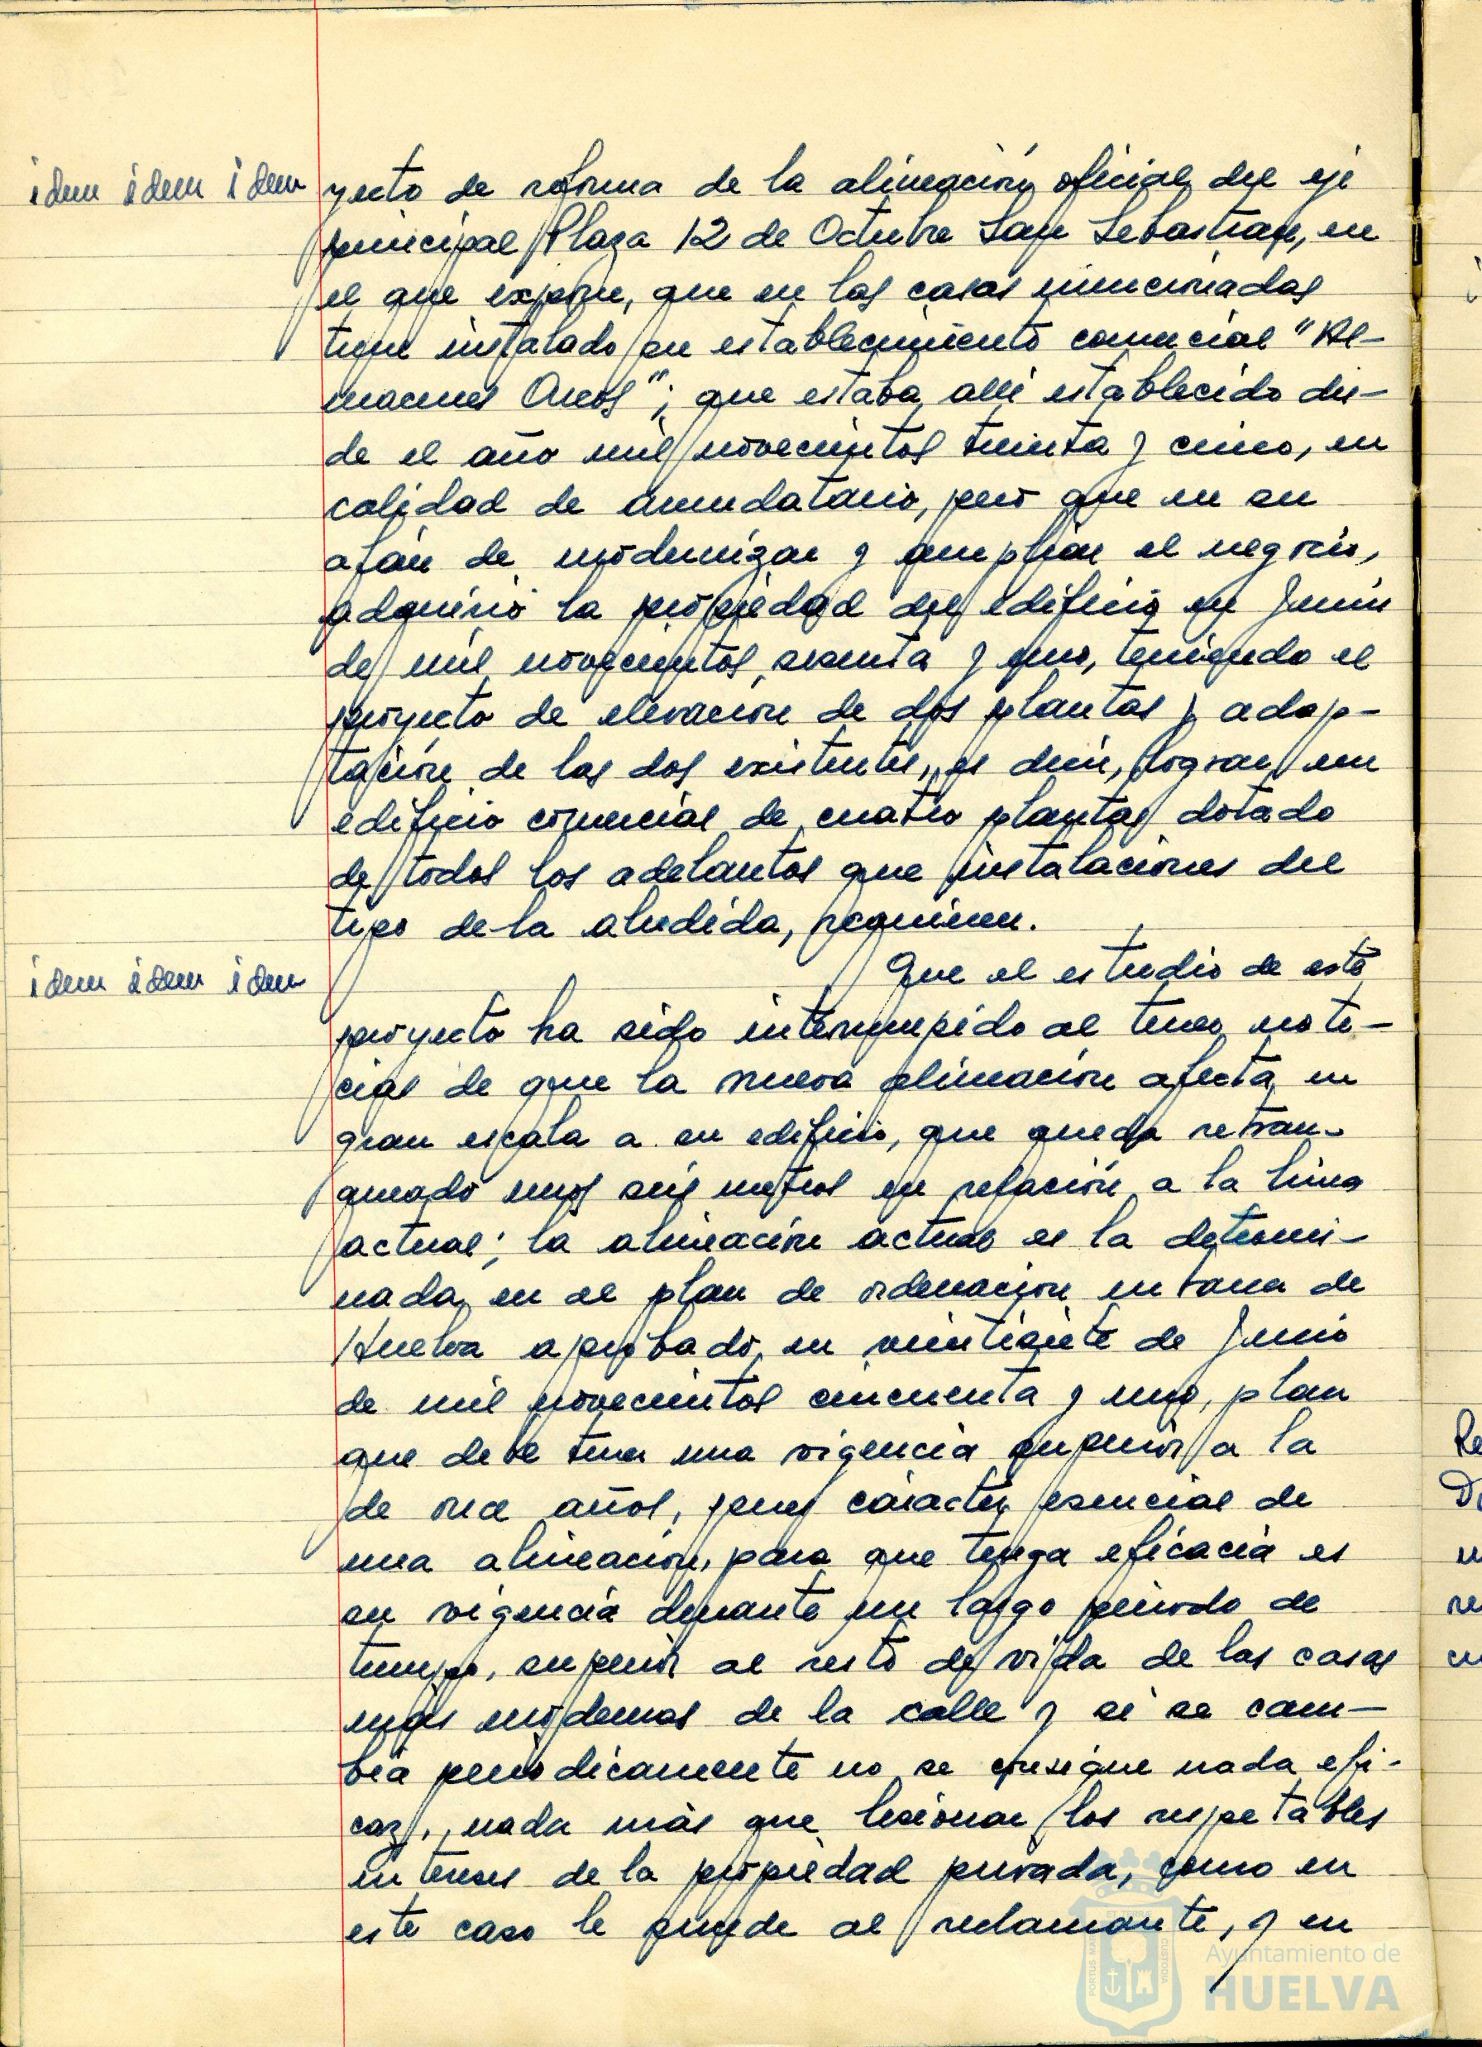 idem idem idem
yecto de reforma de la alineación oficial del eje
principal Plaza 12 de Octubre San Sebastian, en
el que expone, que en las casas mencionadas
tiene instalado su establecimiento comercial "Al-
macenes Arcos"; que estaba alli establecido des-
de el año mil novecientos treinta y cinco, en
calidad de arrendatario, pero que en su
afán de modernizar y ampliar el negocio,
adquirió la propiedad del edificio en Junio
de mil novecientos sesenta y uno, teniendo el
proyecto de elevación de dos plantas y adap-
tación de las dos existentes, es decir, lograr un
edificio comercial de cuatro plantas dotado
de todos los adelantos que instalaciones del
tipo de la aludida, requieren.
idem idem idem
Que el estudio de este
proyecto ha sido interrumpido al tener noti-
cias de que la nueva alineación afecta en
gran escala a su edificio, que queda retran-
queado unos seis metros en relación a la linea
actual; la alineación actual es la determi-
nada en el plan de ordenación urbana de
Huelva aprobado en veintisiete de Junio
de mil novecientos cincuenta y uno, plan
que debe tener una vigencia superior a la
de once años, pues carácter esencial de
una alineación, para que tenga eficacia es
su vigencia durante un largo periodo de
tiempo, superior al resto de vida de las casas
más modernas de la calle y si se cam-
bia periodicamente no se consigue nada efi-
caz, nada más que lesionar los respetables
intereses de la propiedad privada, como en
este caso le sucede al reclamante, y en
PORTUS MARIS
CUSTODIA
Ayuntamiento de
HUELVA